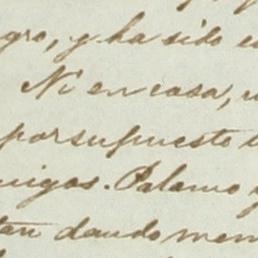 gro, y ha sido
Ni en casa,
por supuesto
migos. Palamo y
tan dando mem